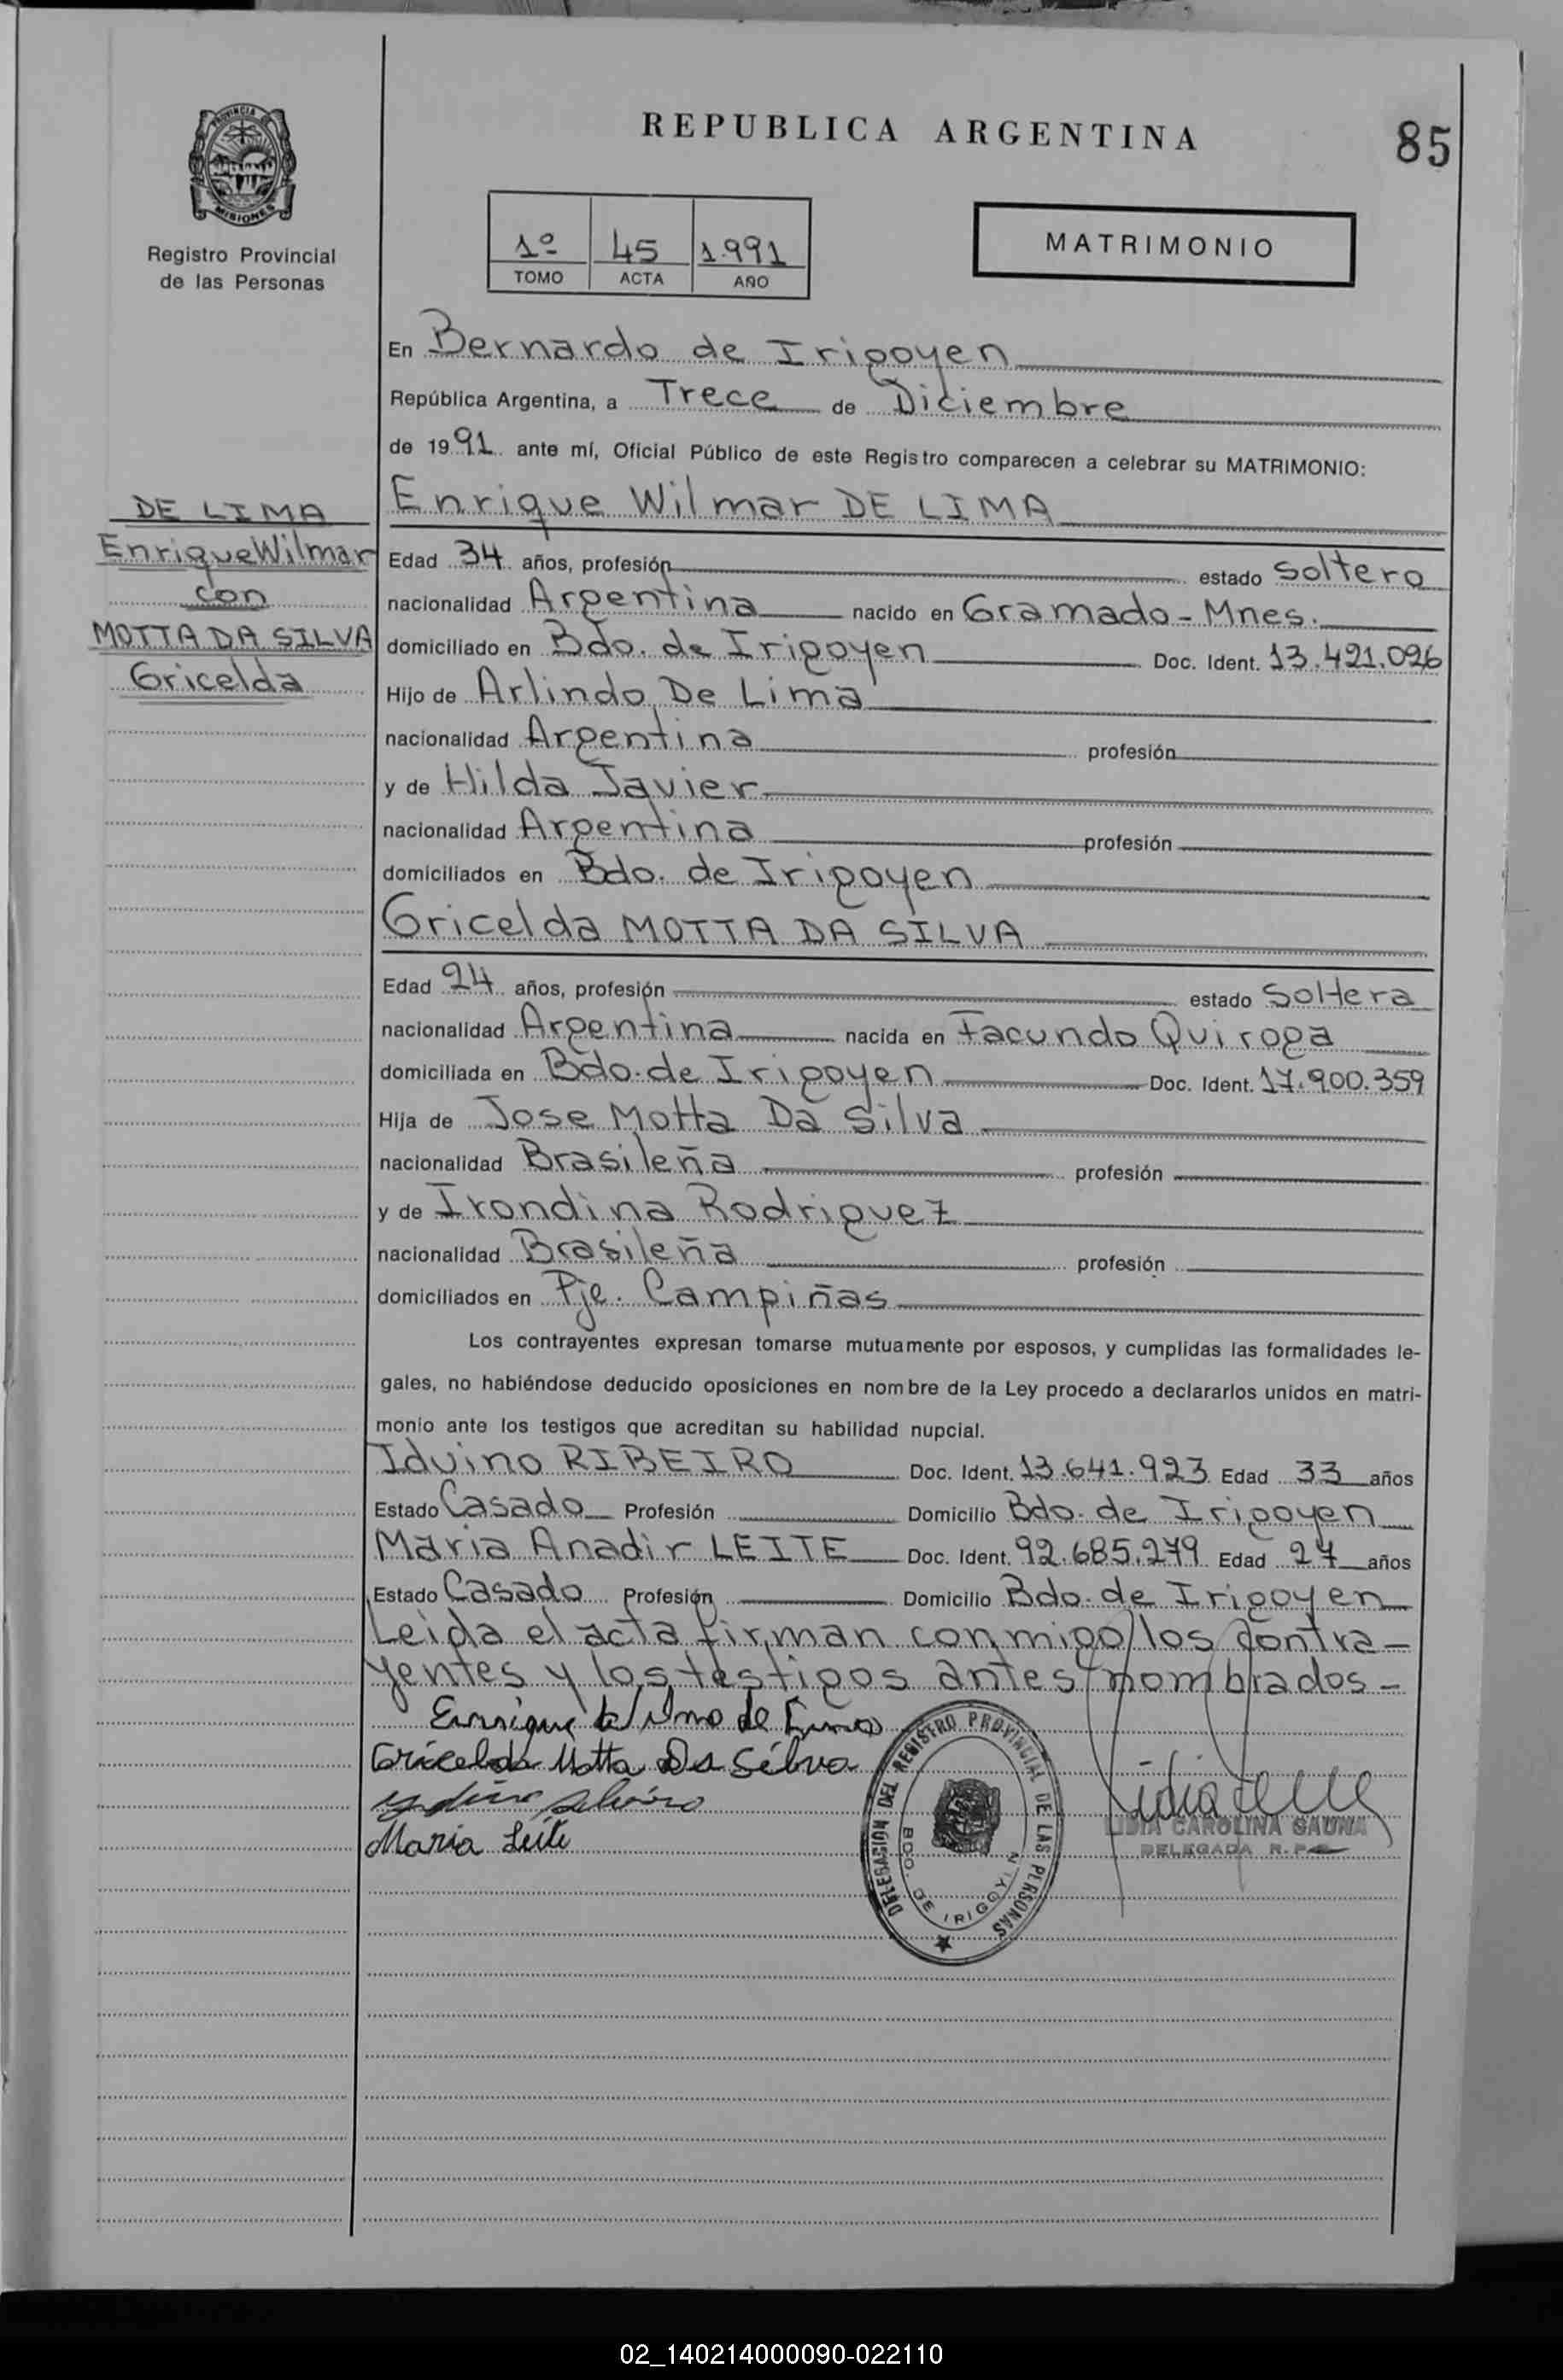 REPUBLICA ARGENTINA
85
PROVINCIA DE MISIONES
Registro Provincial
de las Personas
1º 45 1.991
TOMO ACTA AÑO
MATRIMONIO
En Bernardo de Irigoyen
República Argentina, a Trece de Diciembre
de 1991 ante mí, Oficial Público de este Registro comparecen a celebrar su MATRIMONIO:
DE LIMA
Enrique Wilmar
con
MOTTA DA SILVA
Gricelda
Enrique Wilmar DE LIMA
Edad 34 años, profesión estado Soltero
nacionalidad Argentina nacido en Gramado - Mnes.
domiciliado en Bdo. de Irigoyen Doc. Ident. 13.421.026
Hijo de Arlindo De Lima
nacionalidad Argentina profesión
y de Hilda Javier
nacionalidad Argentina profesión
domiciliados en Bdo. de Irigoyen
Gricelda MOTTA DA SILVA
Edad 24 años, profesión estado Soltera
nacionalidad Argentina nacida en Facundo Quiroga
domiciliada en Bdo. de Irigoyen Doc. Ident. 17.900.359
Hija de Jose Motta Da Silva
nacionalidad Brasileña profesión
y de Irondina Rodriguez
nacionalidad Brasileña profesión
domiciliados en Pje. Campiñas
Los contrayentes expresan tomarse mutuamente por esposos, y cumplidas las formalidades le-
gales, no habiéndose deducido oposiciones en nombre de la Ley procedo a declararlos unidos en matri-
monio ante los testigos que acreditan su habilidad nupcial.
Iduino RIBEIRO Doc. Ident. 13.641.923 Edad 33 años
Estado Casado Profesión Domicilio Bdo. de Irigoyen
Maria Anadir LEITE Doc. Ident. 92.685.279 Edad 27 años
Estado Casado Profesión Domicilio Bdo. de Irigoyen
Leida el acta firman conmigo los contra-
yentes y los testigos antes nombrados -
Enrique Wilmo de Lima
Gricelda Motta Da Silva
Maria Leite
DELEGACION DEL REGISTRO PROVINCIAL DE LAS PERSONAS
BDO. DE IRIGOYEN
LIDIA CAROLINA GAUNA
DELEGADA R. P.
02_140214000090-022110